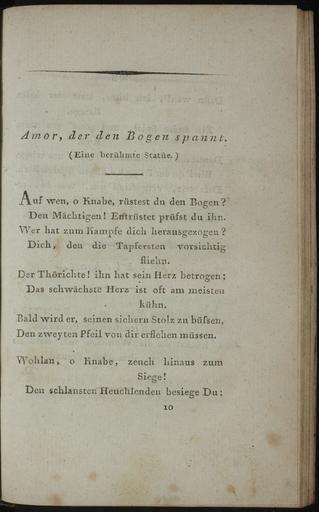 Amor, der den Bogen spannt.
(Eine berühmte Statüe.)
Auf wen, o Knabe, rüstest du den Bogen?
Den Mächtigen! Entrüstet prüfst du ihn.
Wer hat zum Kampfe dich herausgezogen?
Dich, den die Tapfersten vorsichtig
fliehn.
Der Thörichte! ihn hat sein Herz betrogen;
Das schwächste Herz ist oft am meisten
kühn.
Bald wird er, seinen sichern Stolz zu büſsen,
Den zweyten Pfeil von dir erflehen müssen.
Wohlan, o Knabe, zeuch hinaus zum
Siege!
Den schlausten Heuchlenden besiege Du;
10